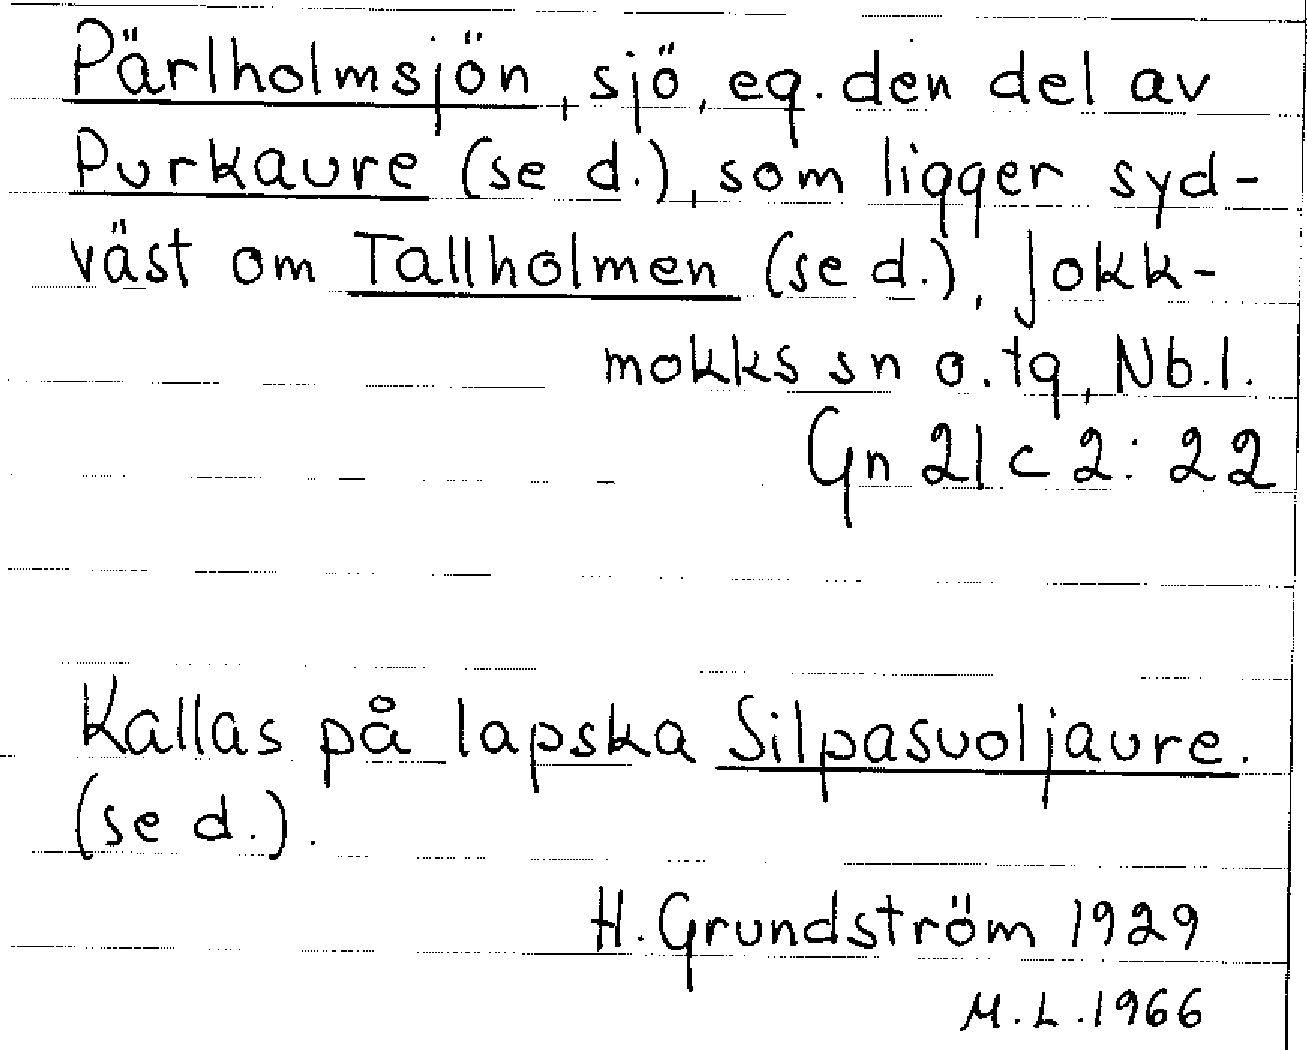 Pärlholmsjön, sjö, eg. den del av
Purkaure (se d.), som ligger syd-
väst om Tallholmen (se d.), Jokk-
mokks sn o. tg, Nb.l.
Gn 21 c 2: 22
Kallas på lapska Silpasuoljaure.
(se d.).
H. Grundström 1929
M.L. 1966